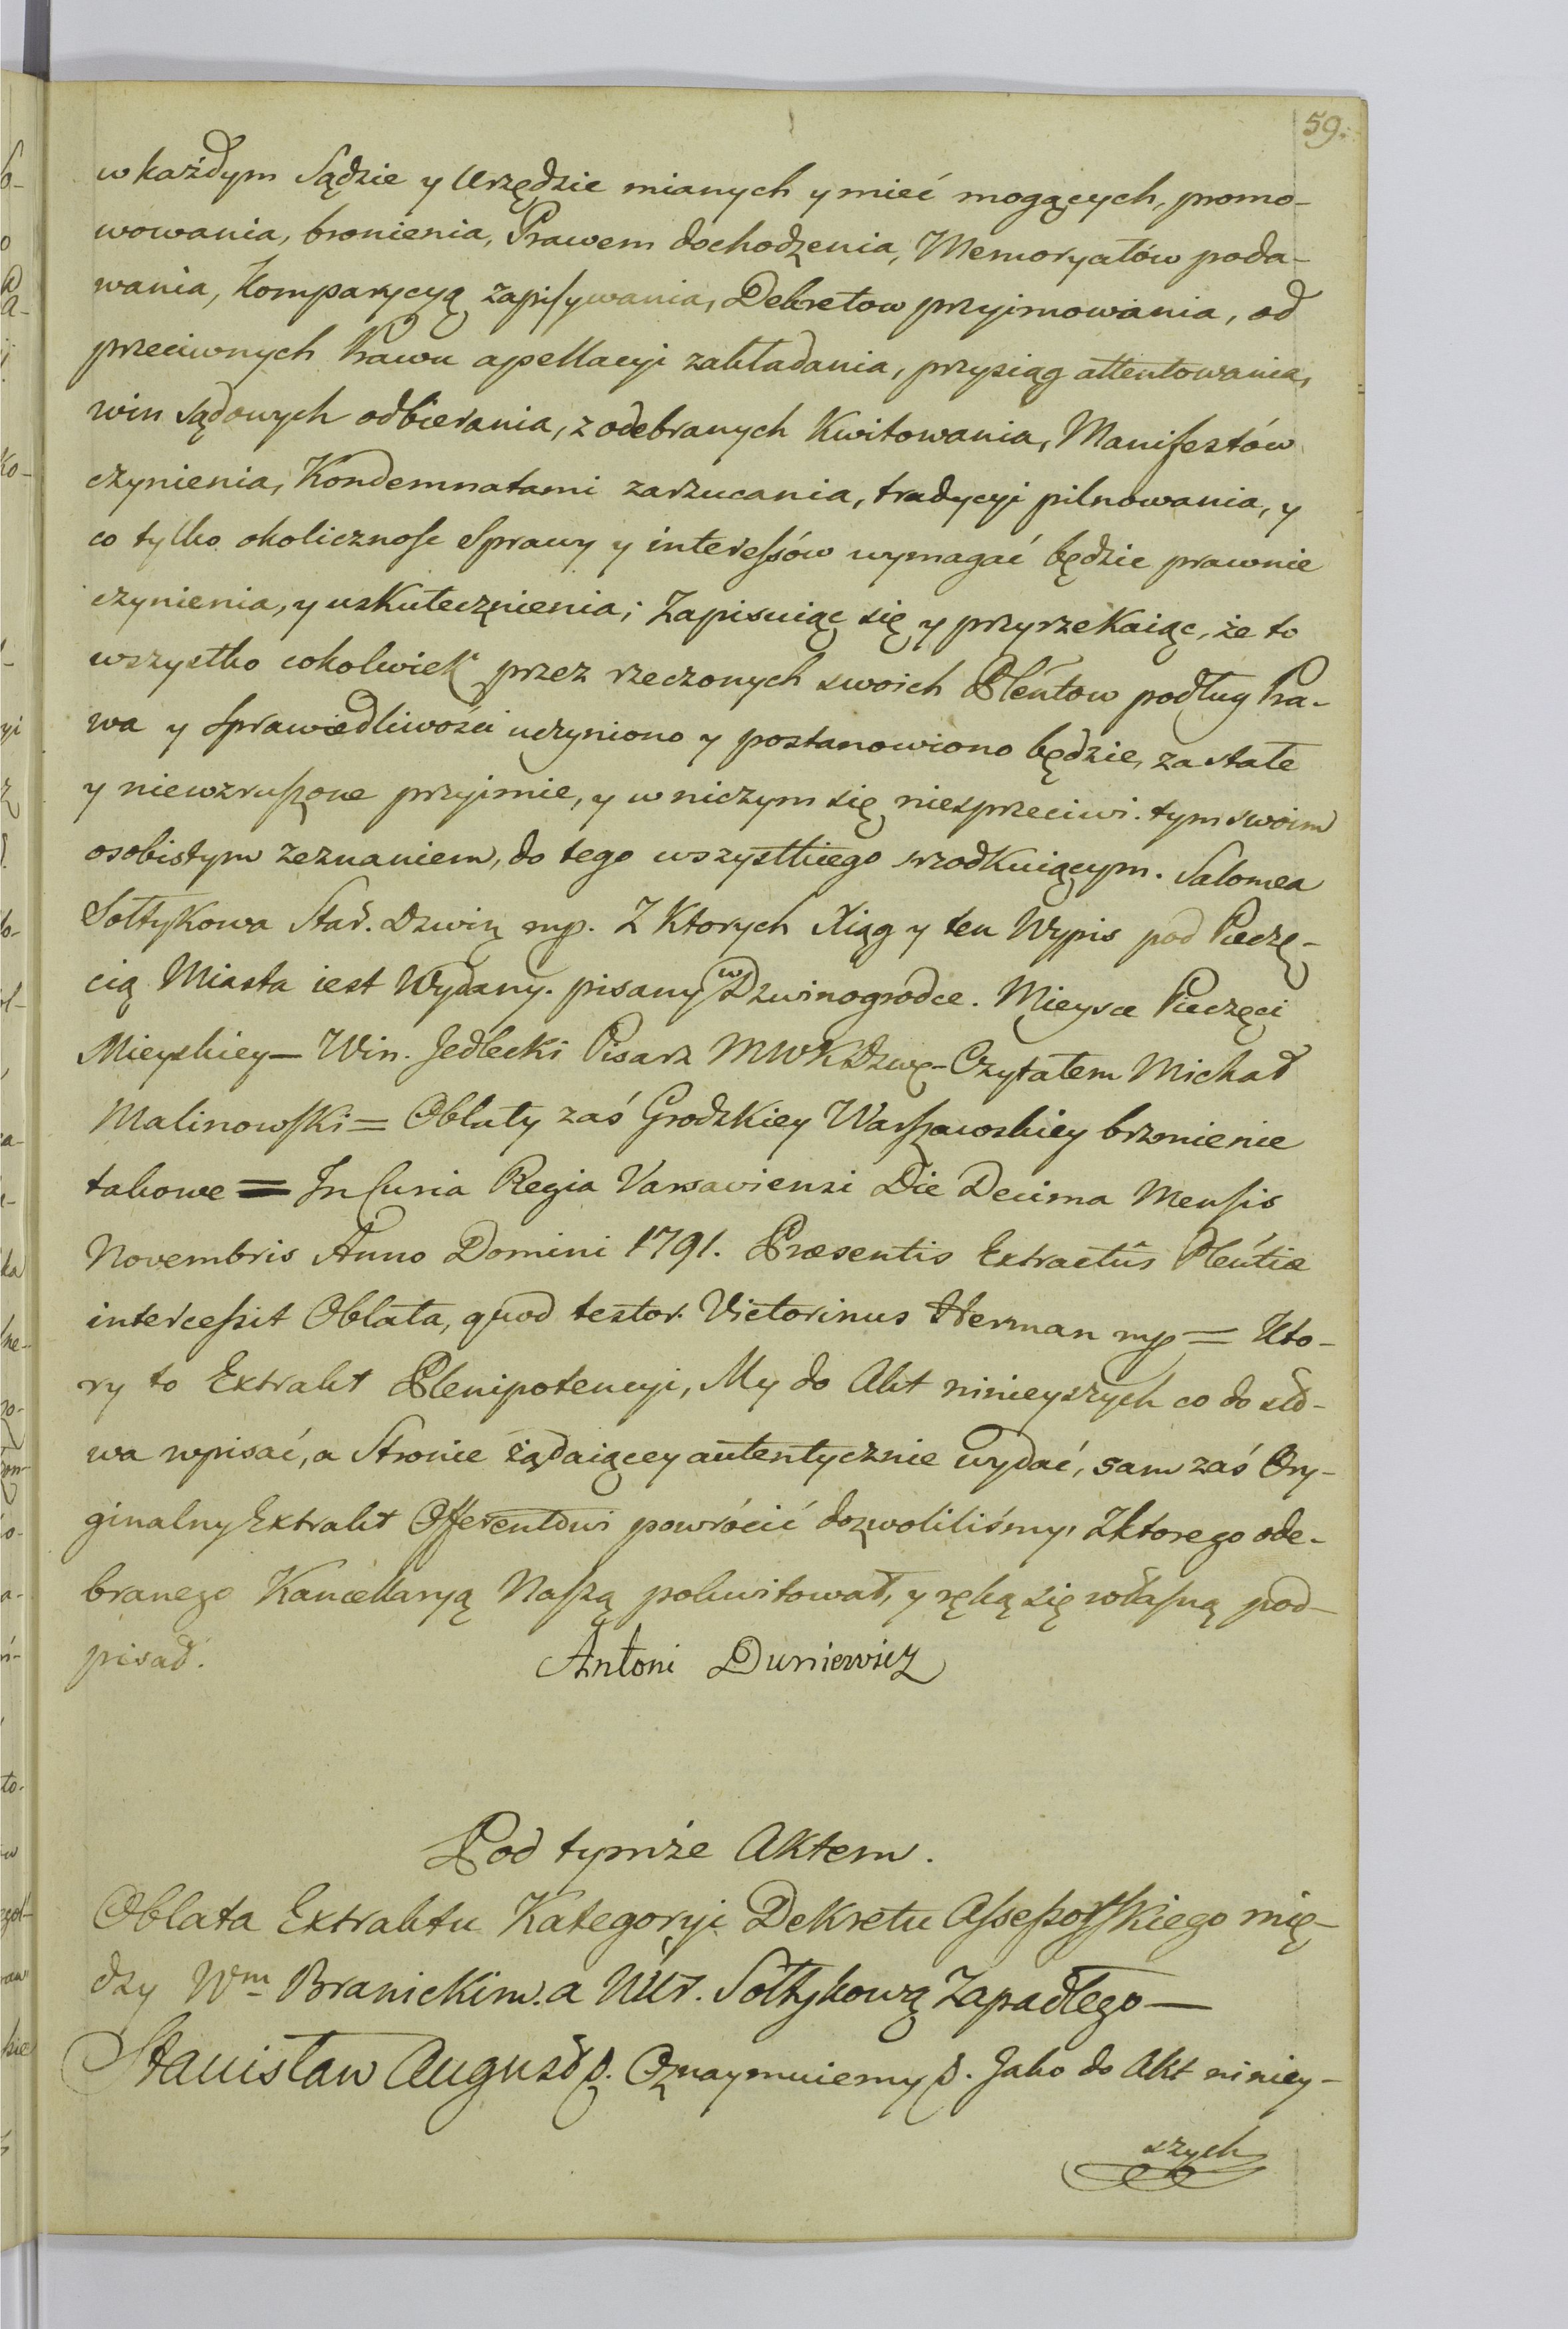 59.
w każdym Sądzie y Urzędzie mianych y mieć mogących, promo-
wowania, bronienia, Prawem dochodzenia, Memoryałów poda-
wania, Komparycyą zapisywania, Dekretow przyimowania, od
przeciwnych Prawu appellacyi zakładania, przysiąg attentowania,
win sądowych odbierania, z odebranych Kwitowania, Manifestów
czynienia, Kondemnatami zarzucania, tradycyi pilnowania, y
co tylko okolicznosc Sprawy y interessów wymagać będzie prawnie
czynienia, y uskutecznienia; Zapisuiąc się y przyrzekaiąc, że to
wszystko cokolwiek przez rzeczonych swoich Pleńtow podług Pra-
wa y Sprawiedliwości uczyniono y postanowiono będzie, za stałe
y niewzruszone przyimie, y w niczym się niesprzeciwi. tym swoim
osobistym zeznaniem, do tego wszystkiego srodkuiącym. Salomea
Sołtykowa Star. Dzwin mp. Z Ktorych Xiąg y ten Wypis pod Pieczę-
cią Miasta iest Wydany. pisany w Dzwinogrodce. Mieysce Pieczęci
Mieyskiey — Win. Jedlecki Pisarz MWKDzwę — Czytałem Michał
Malinowski = Oblaty zaś Grodzkiey Warszawskiey brzmienie
takowe = In Curia Regia Varsaviensi Die Decima Mensis
Novembris Anno Domini 1791. Præsentis Extractûs Pleńtiæ
intercessit Oblata, quod testor. Victorinus Herman mp = Kto-
ry to Extrakt Plenipotencyi, My do Akt ninieyszych co do sło-
wa wpisać, a Stronie żądaiącey autentycznie wydać, sam zaś Ory-
ginalny Extrakt Offerentowi powrócić dozwoliliśmy, Zktorego ode-
branego Kancellaryą Naszą pokwitował, y ręką się własną pod-
pisał.
Antoni Duniewicz
Pod tymże Aktem.
Oblata Extraktu Kategoryi Dekretu Assessorskiego mię-
dzy Wm Branickim a Sołtykową Zapadłego —
Stanisław August Oznaymuiemy Jako do Akt niniey-
szych